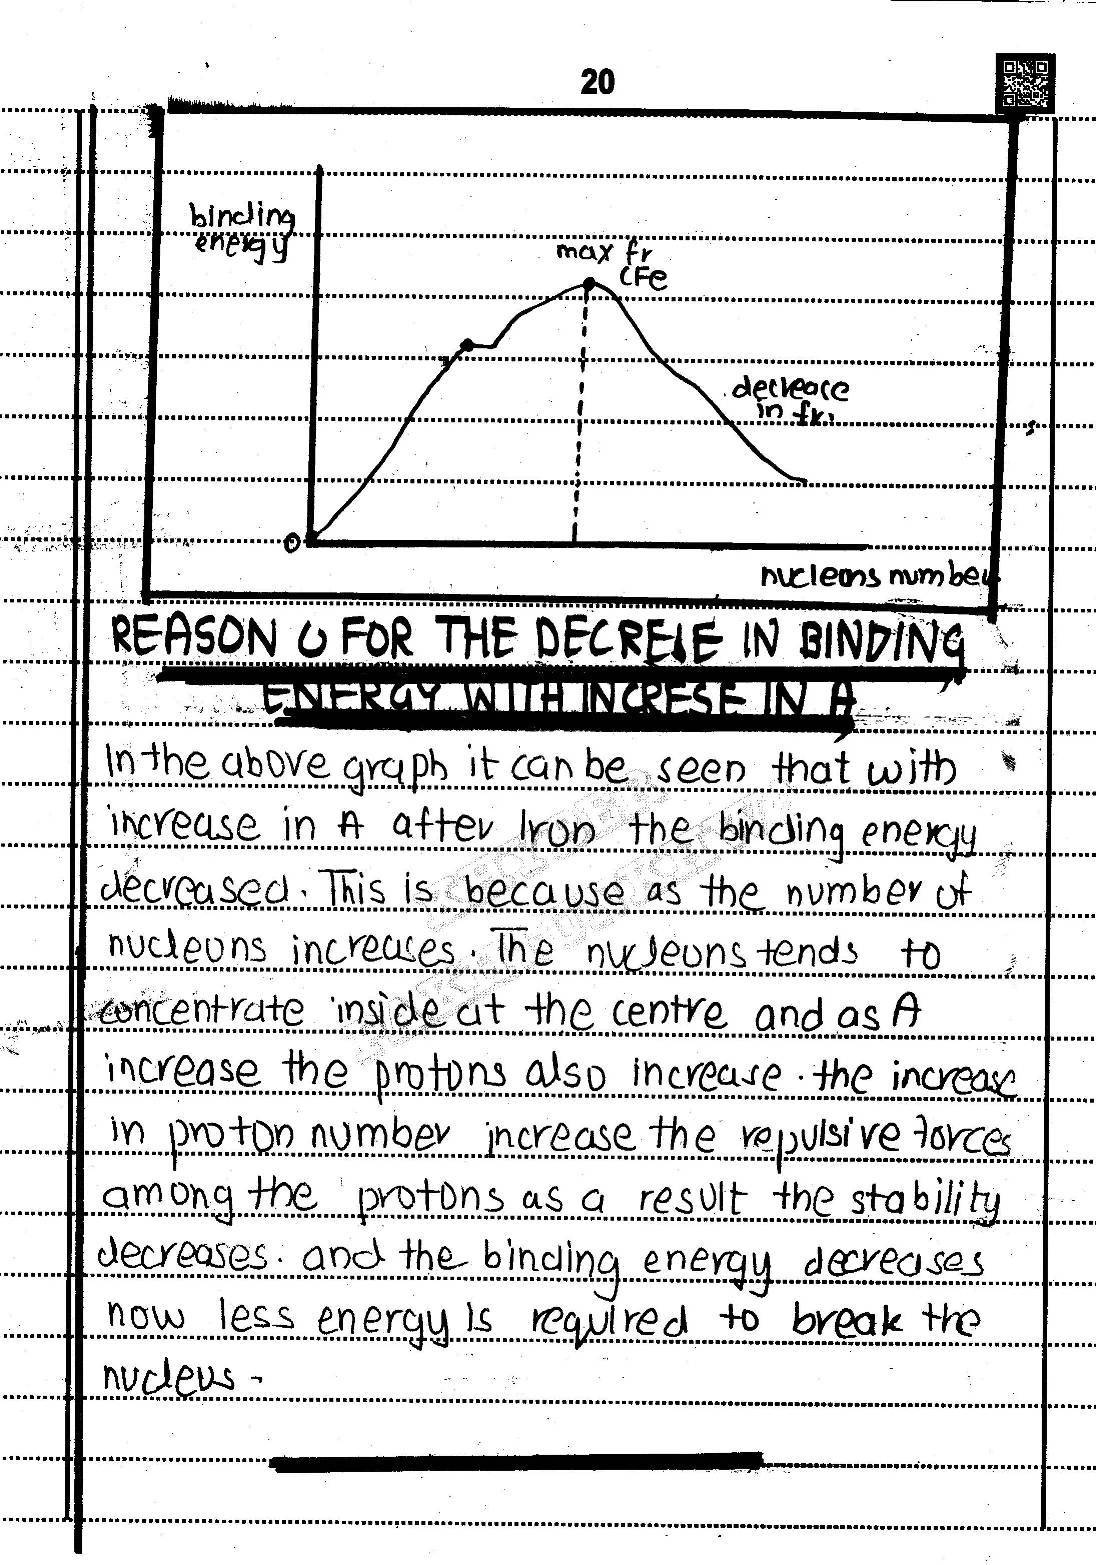 20
binding
energy
max fr
(Fe
decreace
in fr.
0
nucleons number
REASON FOR THE DECRESE IN BINDING
ENERGY WITH INCRESE IN A
In the above graph it can be seen that with
increase in A after Iron the binding energy
decreased. This is because as the number of
nucleons increases. The nucleons tends to
concentrate inside at the centre and as A
increase the protons also increase. the increase
in proton number increase the repulsive forces
among the protons as a result the stability
decreases. and the binding energy decreases
now less energy is required to break the
nucleus -